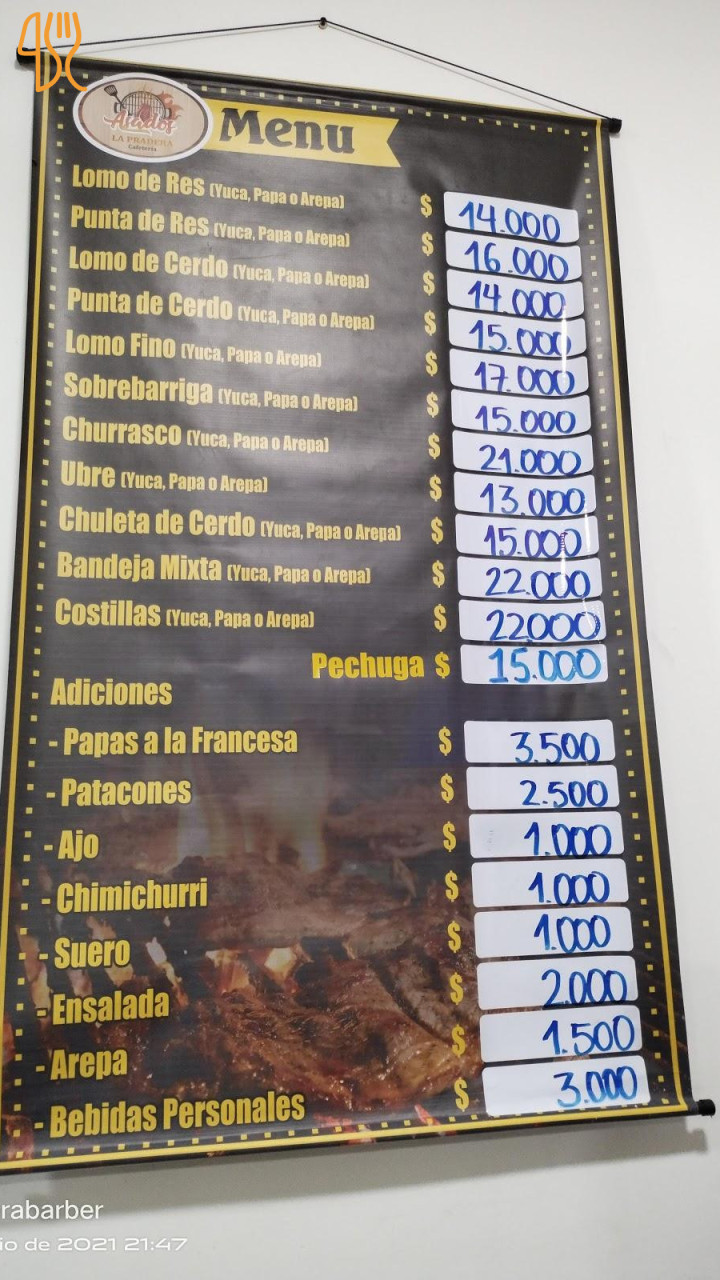 Asados
LA PRADERA
Cafetería
Menu
Lomo de Res (Yuca, Papa o Arepa) $ 14.000
Punta de Res (Yuca, Papa o Arepa) $ 16.000
Lomo de Cerdo (Yuca, Papa o Arepa) $ 14.000
Punta de Cerdo (Yuca, Papa o Arepa) $ 15.000
Lomo Fino (Yuca, Papa o Arepa) $ 17.000
Sobrebarriga (Yuca, Papa o Arepa) $ 15.000
Churrasco (Yuca, Papa o Arepa) $ 21.000
Ubre (Yuca, Papa o Arepa) $ 13.000
Chuleta de Cerdo (Yuca, Papa o Arepa) $ 15.000
Bandeja Mixta (Yuca, Papa o Arepa) $ 22.000
Costillas (Yuca, Papa o Arepa) $ 22000
Pechuga $ 15.000
Adiciones
- Papas a la Francesa $ 3.500
- Patacones $ 2.500
- Ajo $ 1.000
- Chimichurri $ 1.000
- Suero $ 1.000
- Ensalada $ 2.000
- Arepa $ 1.500
- Bebidas Personales $ 3.000
rabarber
io de 2021 21:47